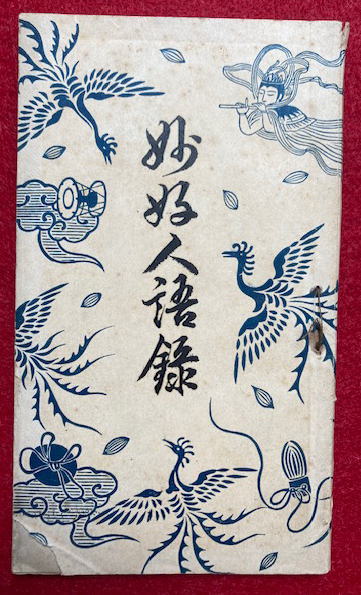 妙好人語錄